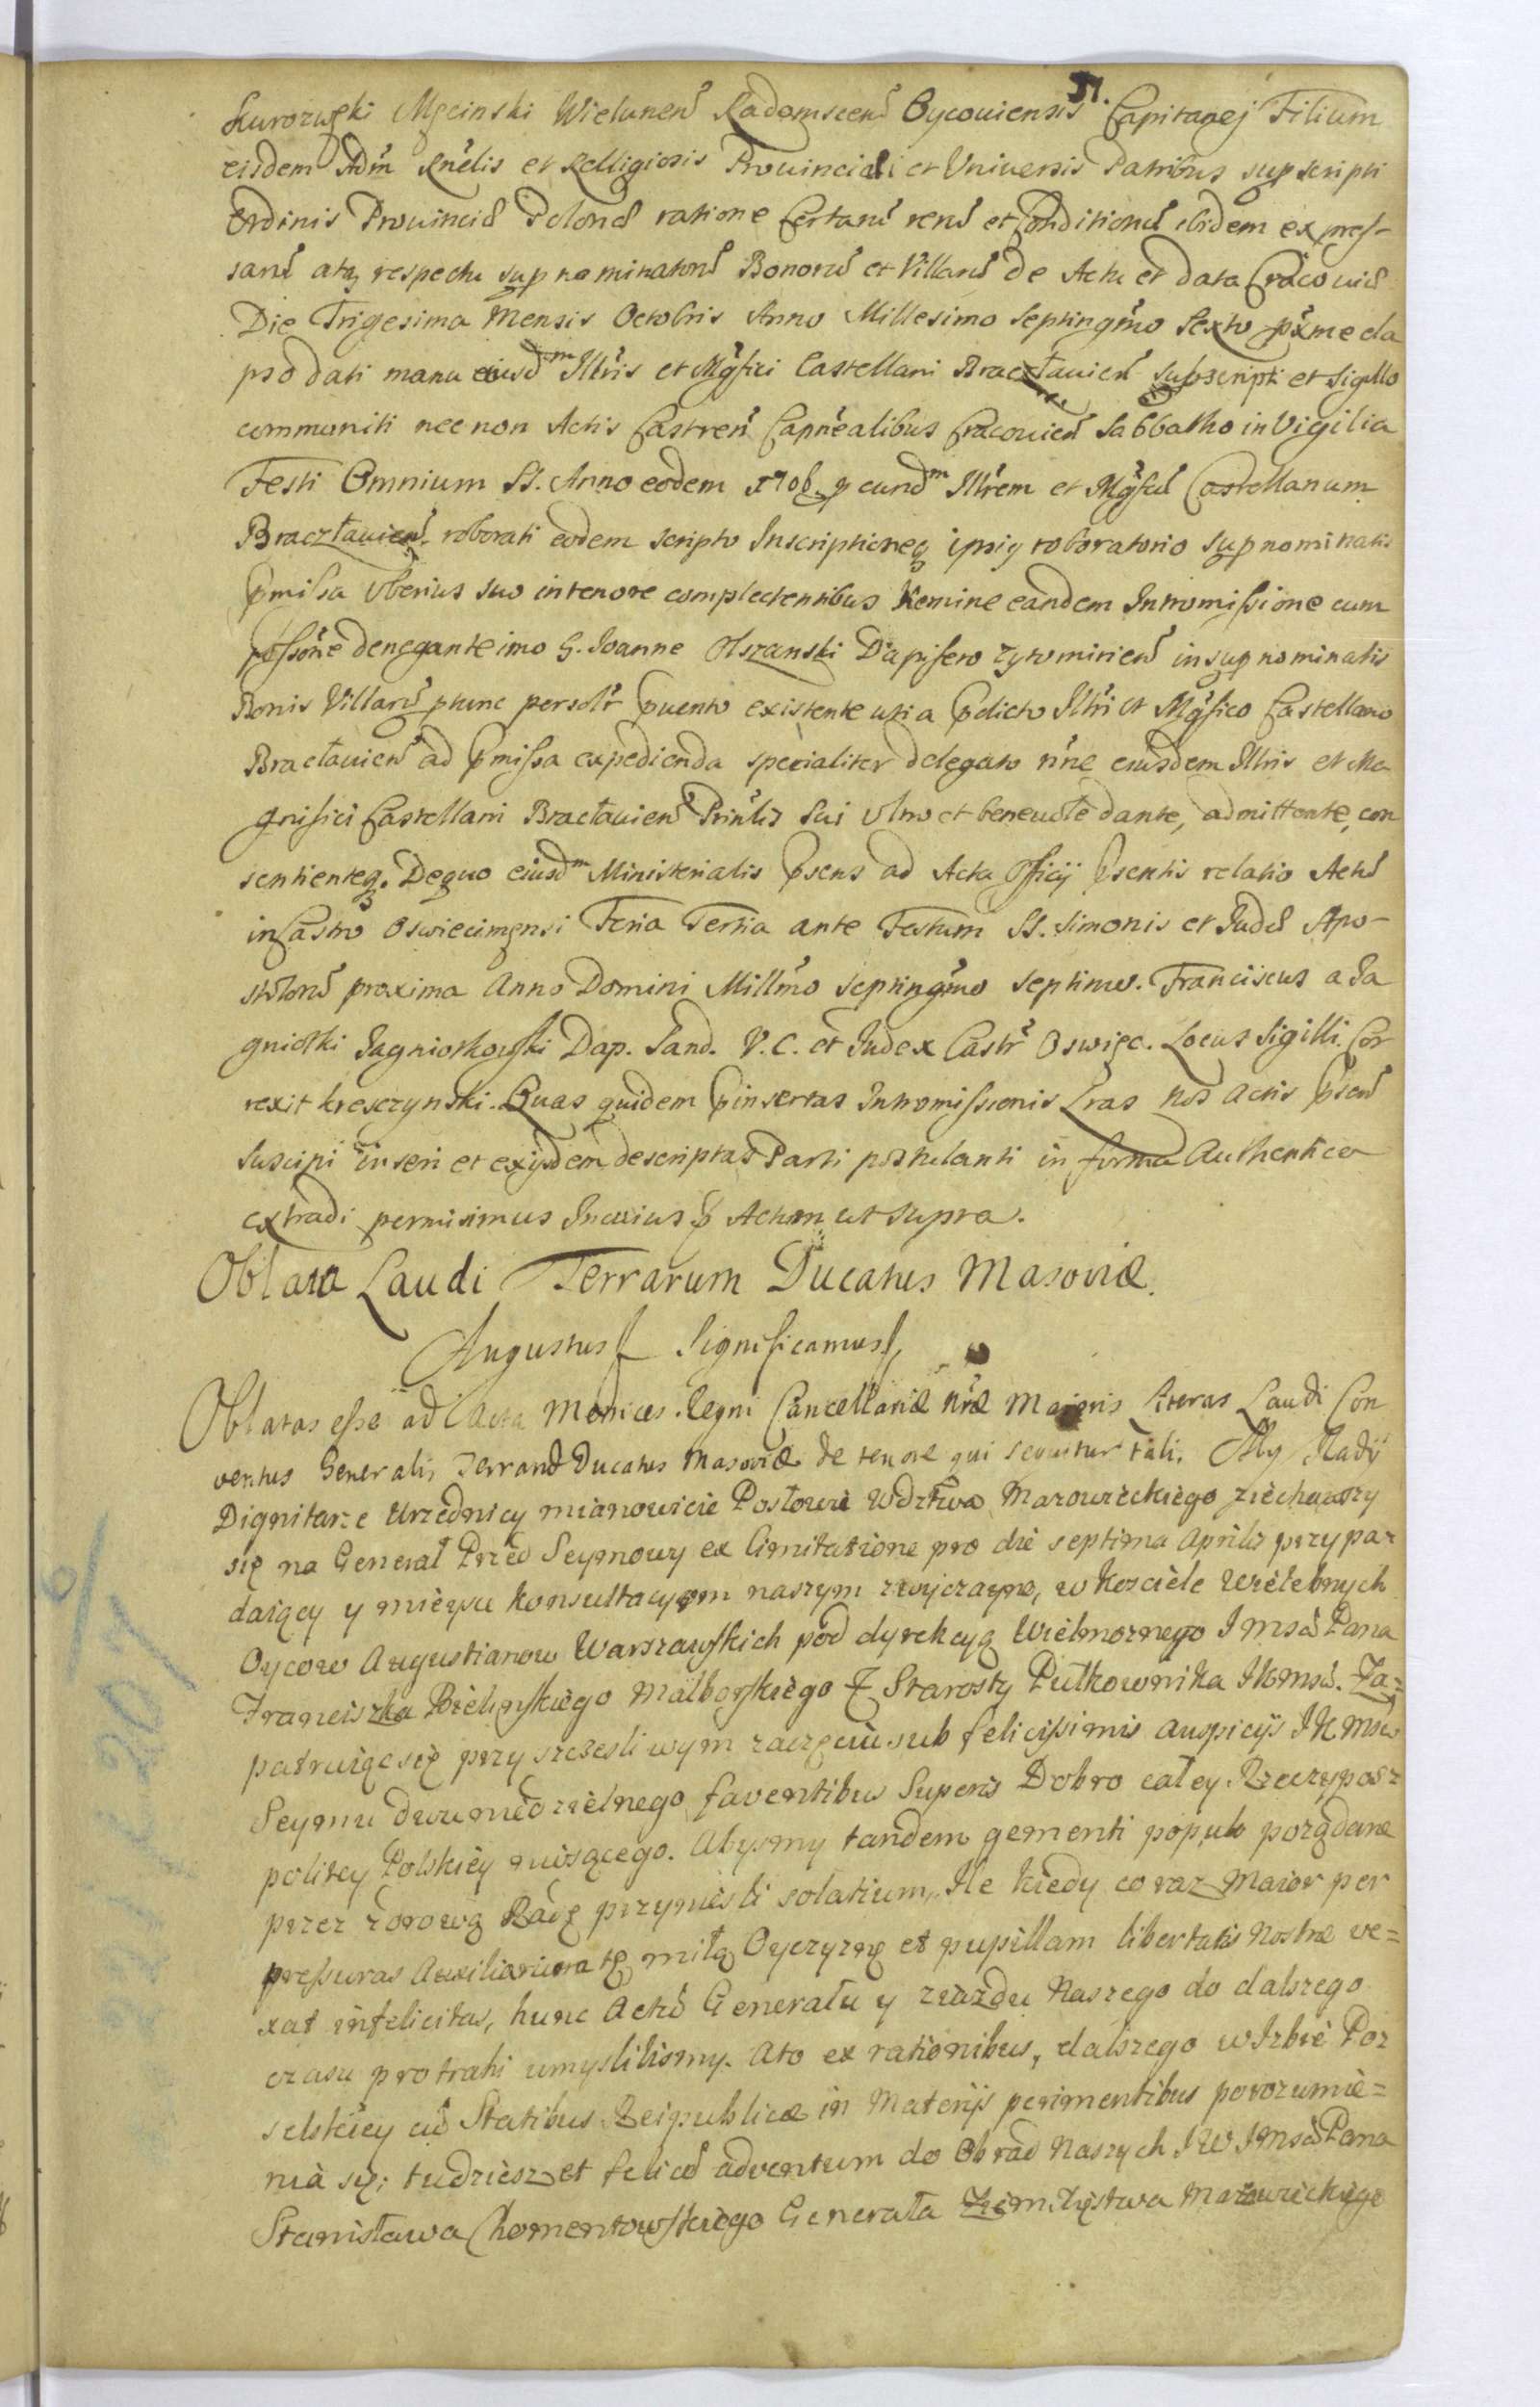 51.
Kurozwęki Męcinski Wielunen̄ Radomscen̄ Oycouiensis Capitanej Filium
eisdem Adm̄ Rnd̄is et Relligiosis Prouinciali et Universis Patribus supscripti
Ordinis Provinciæ Polonæ ratione Certarū rerū et Conditionū ibidem expres-
sarū atq respectu supnominatorū Bonorū et Villarū de Actu et data Cracoviæ
Die Trigesima Mensis Octobris Anno Millesimo Septingm̄o Sexto px̄me ela
pso dati manu eiusdm Illr̄is et Mgf̄ici Castellani Bractauien̄ subscripti et sigillo
communiti nec non Actis Castren̄ Capn̄ealibus Cracouien̄ Sabbatho in Vigilia
Festi Omnium SS. Anno eodem 1706. p eundm Illr̄em et Mgf̄cū Castellanum
Bracztauien̄. roborati eodem scripto Inscriptioneq ipsiq roboratorio supnominatis
pmissa Vberius suo in tenore complectentibus Nemine eandem Intromissione cum
possōne denegante imo G. Joanne Olszanski Dapifero Zytomirien̄ in supnominatis
Bonis Villarū ptunc personlr̄ puento existente uti a pdicto Illr̄i et Mgf̄ico Castellano
Bractauien̄ ad pmissa expedienda specialiter delegato nn̄e eiusdem Illr̄is et Ma
gnifici Castellani Bractauien̄ Prinlis Sui Vltro et beneuole dante, admittente, con
sentienteq. De quo eiusdm Ministerialis psens ad Acta Officij psentis relatio Actū
in Castro Oswiecimensi Feria Tertia ante Festum SS. Simonis et Judæ Apo-
stolorū proxima Anno Domini Millm̄o Septingm̄o Septimo. Franciscus a Ja
gniątki Jagniątkowski Dap. Sand. V. C. et Judex Castr̄ Oswięc. Locus Sigilli. Cor
rexit Kresczynski. Quas quidem pinsertas Intromissionis Lras nos Actis psen̄
suscipi inseri et exijsdem descriptas Parti postulanti in forma Authentica
extradi permisimus In cuius p Actum ut supra.
Oblata Laudi Terrarum Ducatus Masoviæ.
Augustus Significamus
Oblatas esse ad Acta Metrices Regni Cancellariæ nr̄æ Maioris Literas Laudi Con
ventus Generalis Terrarū Ducatus Masoviæ de tenore qui sequitur tali. My Rady
Dignitarze Urzędnicy mianowicie Posłowie Wdztwa Mazowieckiego ziechawszy
się na Generał Przed Seymowy ex limitatione pro die septima Aprilis przypa
daiący y mieyscu konsultacyom naszym zwyczayne, w Kosciele Wielebnych
Oycow Augustianow Warszawskich pod dyrekcyą Wielmoznego Jmsci Pana
Franciszka Bielinskiego Malborskiego Starosty Pułkownika JKmsci. Za=
patruiąc się przy szczesliwym zaczęciu sub felicissimis auspicijs JKMsci
Seymu dwuniedzielnego faventibus Superis Dobro całey Rzeczypos
politey Polskiey niosącego. Abysmy tandem gementi populo poządane
przez zdrową Radę przyniesli solatium, Ile kiedy co raz maior per
pressuras Auxiliarium tę miłą Oyczyznę et pupillam libertatis Nostræ ve=
xat infelicitas, hunc Actū Generału y ziazdu Naszego do dalszego
czasu protrahi umyslilismy. Ato ex rationibus, dalszego w Izbie Po
selskiey cū Statibus Reipublicæ in Materijs perimentibus porozumie=
nia się; tudziesz et felicē adventum do Obrad Naszych JW Jmsci Pana
Stanisława Chomentowskiego Generała Ziem Xięstwa Mazowieckiego